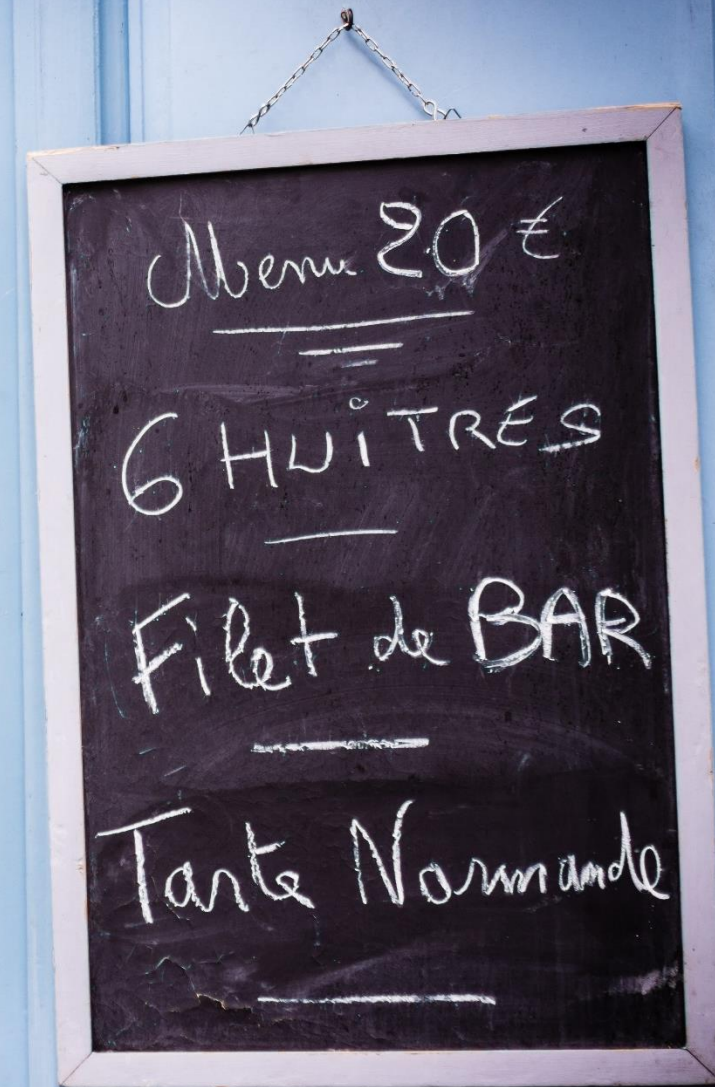 Menu 20 €
6 HUîTRES
Filet de BAR
Tarte Normande